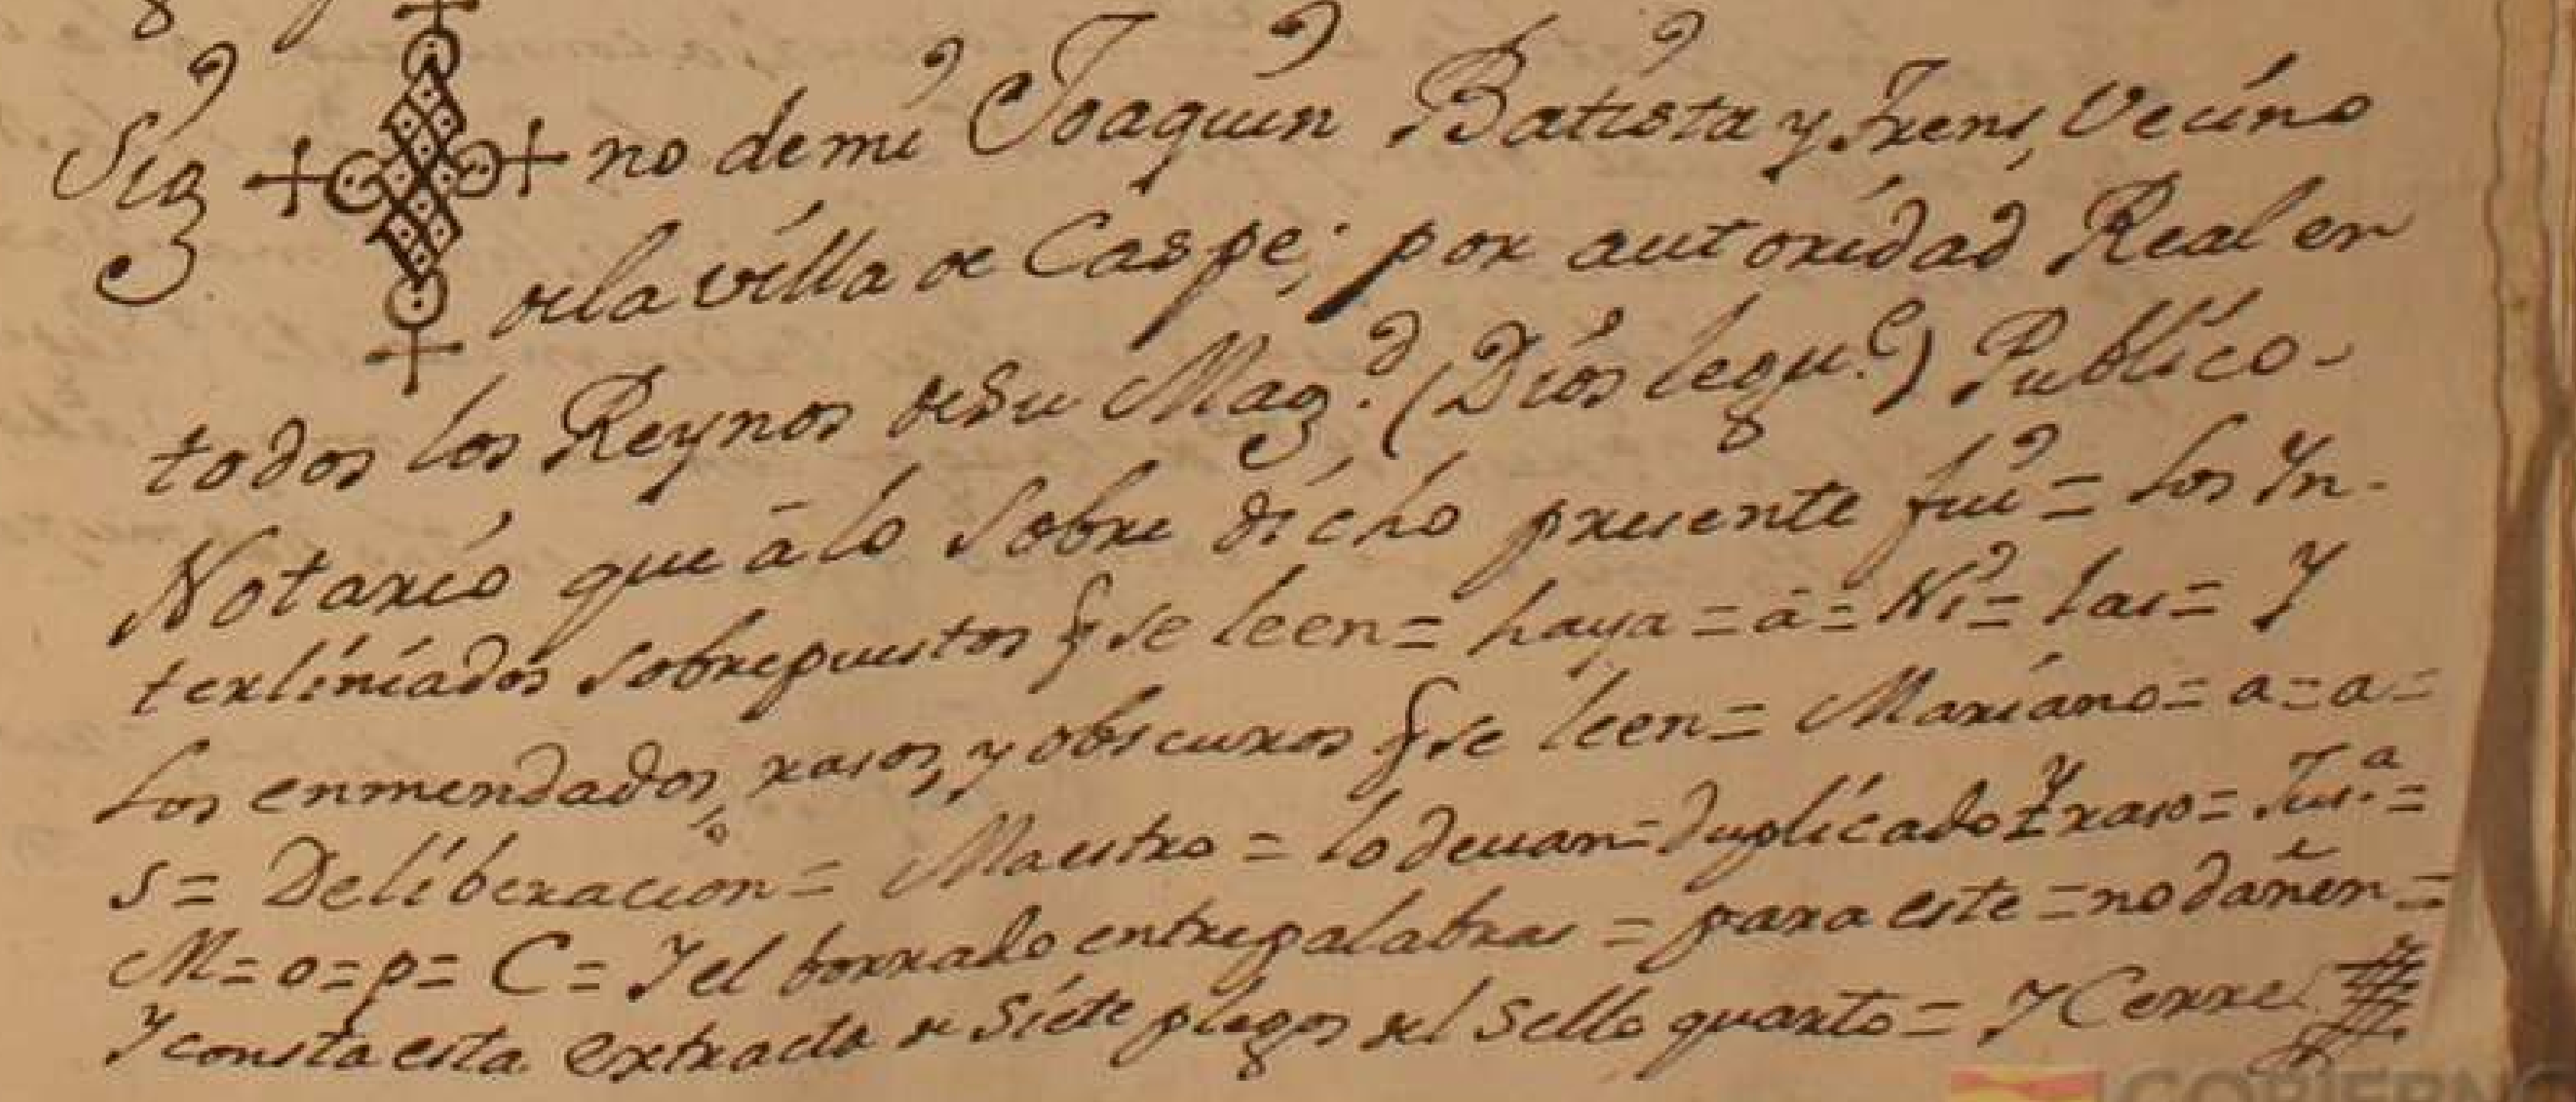 Sig no de mi Joaquin Batista y Frens, Vecino
de la villa de Caspe; por autoridad Real en
todos los Reynos de Su Mag.d (Dios le gu.e) Publico
Notario que â lo sobre dicho presente fui = Los In-
terliniados sobrepuestos q se leen = haya = â = Ni = las = Y
Los enmendados, rasos, y obscuros q se leen = Mariano = a = a =
s = Deliberacion = Maestro = lo devan = duplicado Y raso = Jus.a =
M = o = p = C = Y el borrado entrepalabras = para este = no dañen =
Y consta esta extracta de Siete plegos del Sello quarto = Y Cerre.
GOBIERNO